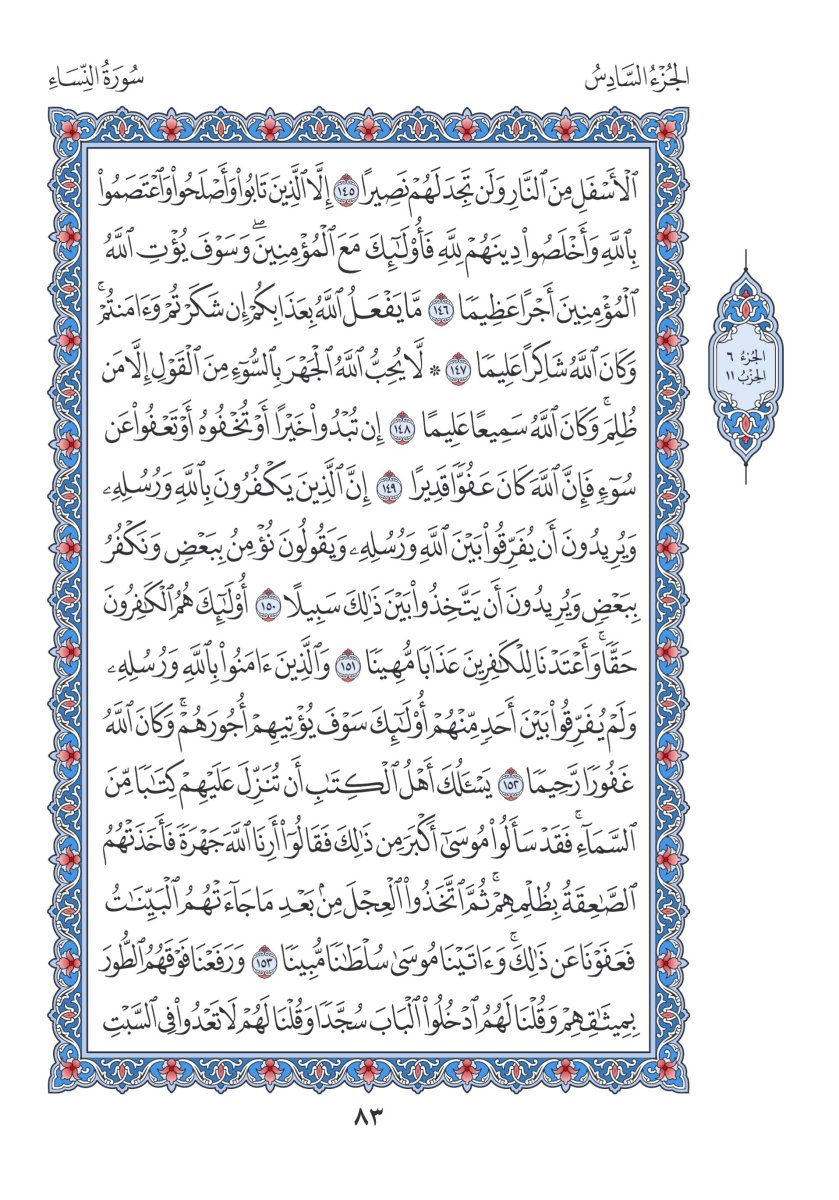 الجُزْءُ السَّادِسُ
سُورَةُ النِّسَاءِ
ٱلۡأَسۡفَلِ مِنَ ٱلنَّارِ وَلَن تَجِدَ لَهُمۡ نَصِيرًا ١٤٥ إِلَّا ٱلَّذِينَ تَابُواْ وَأَصۡلَحُواْ وَٱعۡتَصَمُواْ
بِٱللَّهِ وَأَخۡلَصُواْ دِينَهُمۡ لِلَّهِ فَأُوْلَٰٓئِكَ مَعَ ٱلۡمُؤۡمِنِينَۖ وَسَوۡفَ يُؤۡتِ ٱللَّهُ
ٱلۡمُؤۡمِنِينَ أَجۡرًا عَظِيمٗا ١٤٦ مَّا يَفۡعَلُ ٱللَّهُ بِعَذَابِكُمۡ إِن شَكَرۡتُمۡ وَءَامَنتُمۡۚ
وَكَانَ ٱللَّهُ شَاكِرًا عَلِيمٗا ١٤٧ * لَّا يُحِبُّ ٱللَّهُ ٱلۡجَهۡرَ بِٱلسُّوٓءِ مِنَ ٱلۡقَوۡلِ إِلَّا مَن
ظُلِمَۚ وَكَانَ ٱللَّهُ سَمِيعًا عَلِيمًا ١٤٨ إِن تُبۡدُواْ خَيۡرًا أَوۡ تُخۡفُوهُ أَوۡ تَعۡفُواْ عَن
سُوٓءٖ فَإِنَّ ٱللَّهَ كَانَ عَفُوّٗا قَدِيرًا ١٤٩ إِنَّ ٱلَّذِينَ يَكۡفُرُونَ بِٱللَّهِ وَرُسُلِهِۦ
وَيُرِيدُونَ أَن يُفَرِّقُواْ بَيۡنَ ٱللَّهِ وَرُسُلِهِۦ وَيَقُولُونَ نُؤۡمِنُ بِبَعۡضٖ وَنَكۡفُرُ
بِبَعۡضٖ وَيُرِيدُونَ أَن يَتَّخِذُواْ بَيۡنَ ذَٰلِكَ سَبِيلًا ١٥٠ أُوْلَٰٓئِكَ هُمُ ٱلۡكَٰفِرُونَ
حَقّٗاۚ وَأَعۡتَدۡنَا لِلۡكَٰفِرِينَ عَذَابٗا مُّهِينٗا ١٥١ وَٱلَّذِينَ ءَامَنُواْ بِٱللَّهِ وَرُسُلِهِۦ
وَلَمۡ يُفَرِّقُواْ بَيۡنَ أَحَدٖ مِّنۡهُمۡ أُوْلَٰٓئِكَ سَوۡفَ يُؤۡتِيهِمۡ أُجُورَهُمۡۚ وَكَانَ ٱللَّهُ
غَفُورٗا رَّحِيمٗا ١٥٢ يَسۡـَٔلُكَ أَهۡلُ ٱلۡكِتَٰبِ أَن تُنَزِّلَ عَلَيۡهِمۡ كِتَٰبٗا مِّنَ
ٱلسَّمَآءِۚ فَقَدۡ سَأَلُواْ مُوسَىٰٓ أَكۡبَرَ مِن ذَٰلِكَ فَقَالُوٓاْ أَرِنَا ٱللَّهَ جَهۡرَةٗ فَأَخَذَتۡهُمُ
ٱلصَّٰعِقَةُ بِظُلۡمِهِمۡۚ ثُمَّ ٱتَّخَذُواْ ٱلۡعِجۡلَ مِنۢ بَعۡدِ مَا جَآءَتۡهُمُ ٱلۡبَيِّنَٰتُ
فَعَفَوۡنَا عَن ذَٰلِكَۚ وَءَاتَيۡنَا مُوسَىٰ سُلۡطَٰنٗا مُّبِينٗا ١٥٣ وَرَفَعۡنَا فَوۡقَهُمُ ٱلطُّورَ
بِمِيثَٰقِهِمۡ وَقُلۡنَا لَهُمُ ٱدۡخُلُواْ ٱلۡبَابَ سُجَّدٗا وَقُلۡنَا لَهُمۡ لَا تَعۡدُواْ فِي ٱلسَّبۡتِ
الجُزْءُ ٦
الحِزْبُ ١١
٨٣